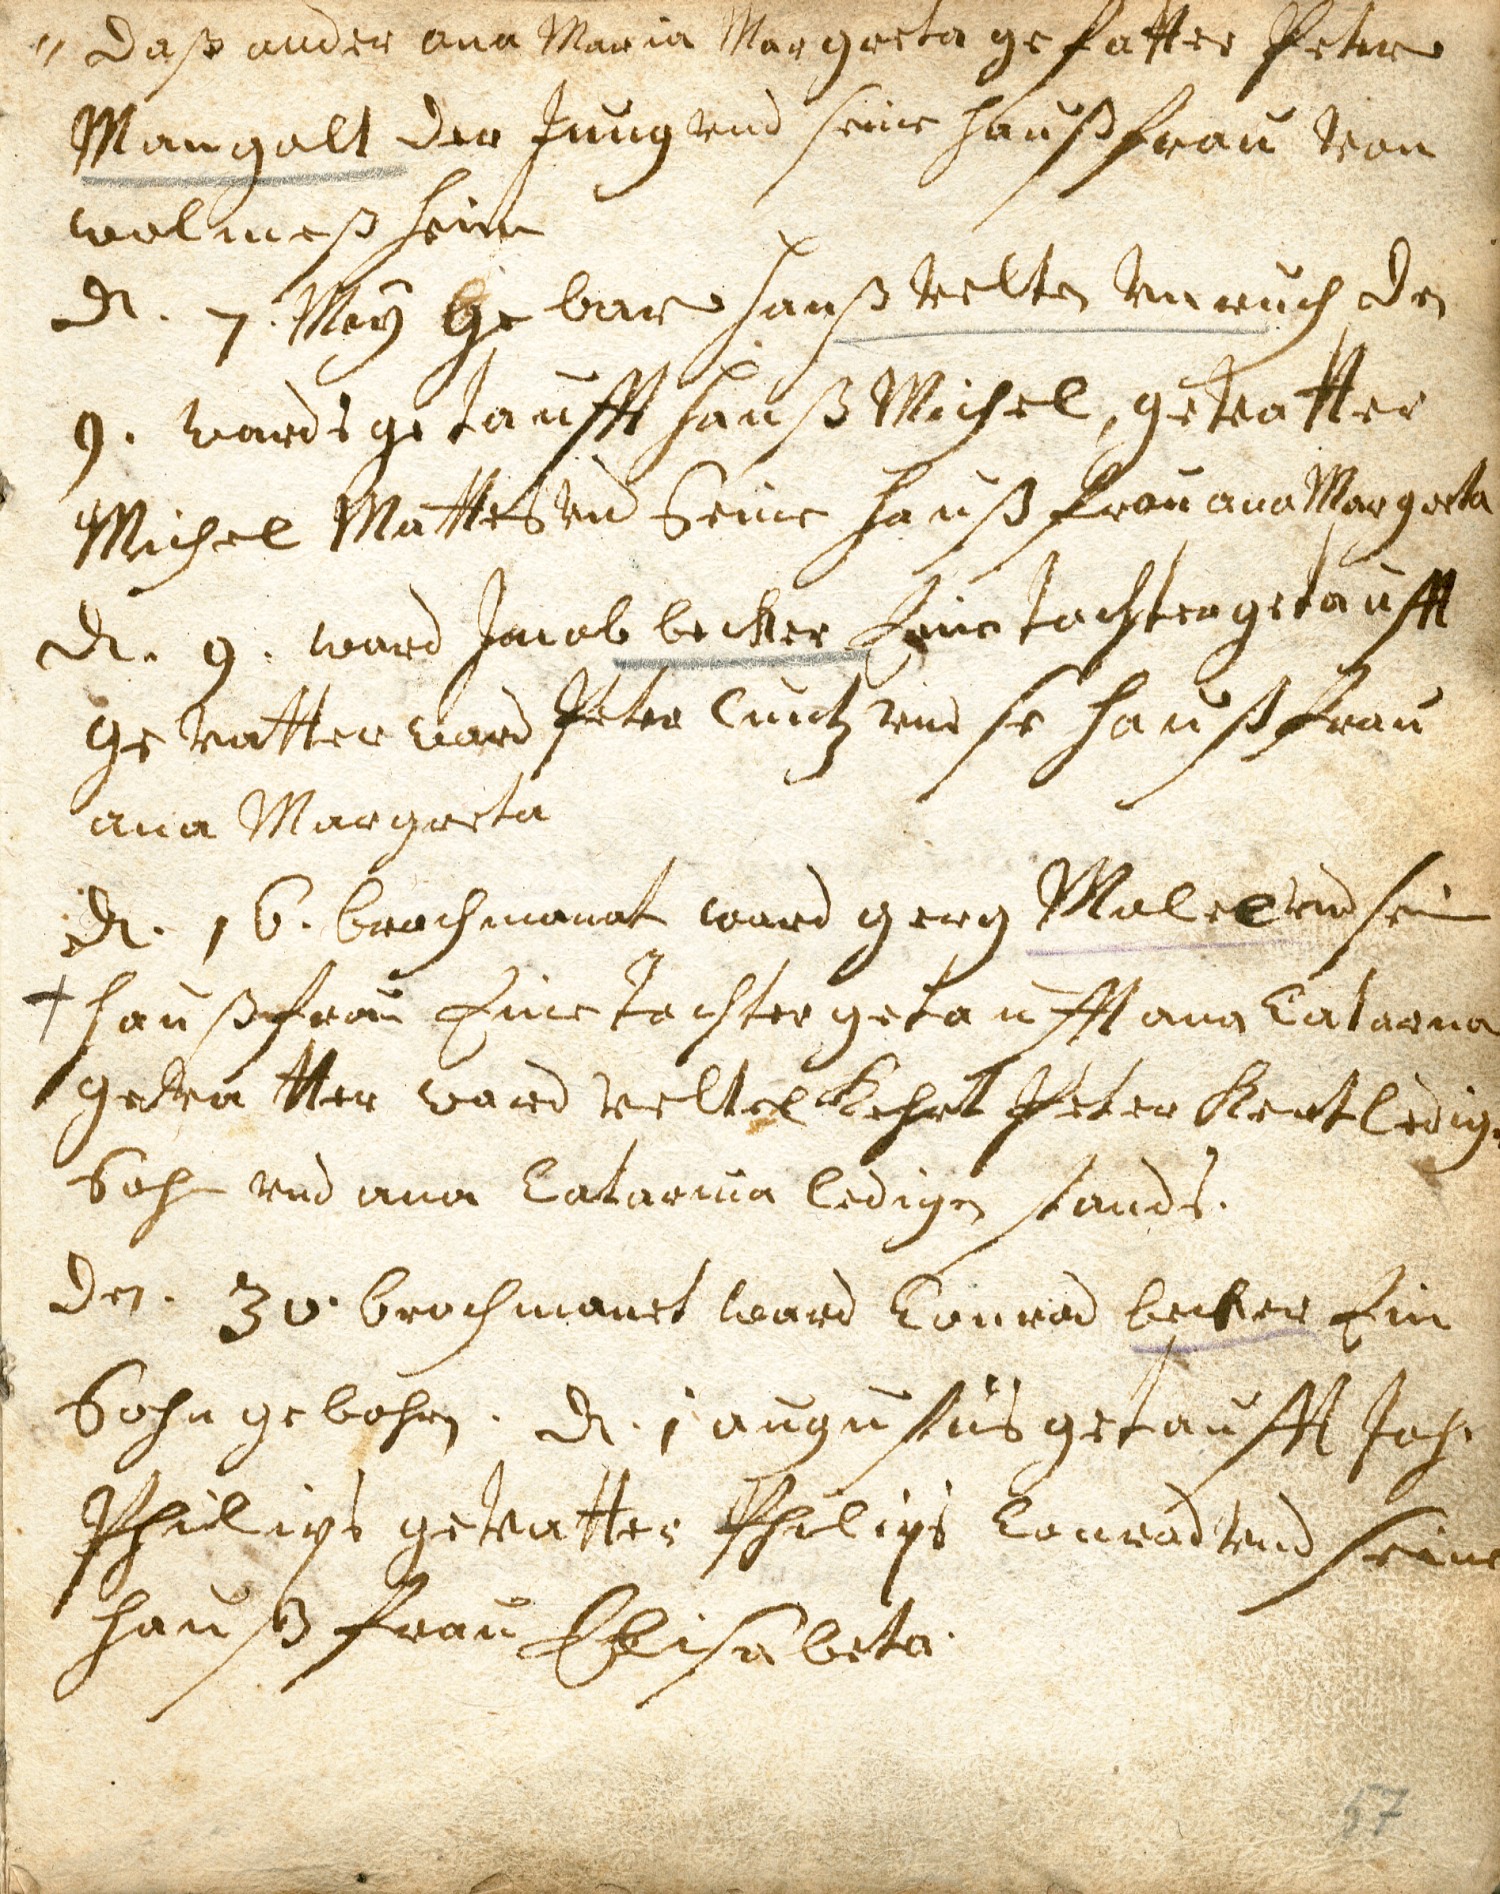 " Daß ander ana Maria Margreta gefatter Peter
Mangolt der Jung vnd seine haußfrau von
wolmeßheim
D. 7. Meÿ Ge bar hanß velten vnruch den
9. wards getaufft hanß Michel, gevatter
Michel Mattes vnd Seine haußfrau ana Margreta
D. 9. ward Jacob becker Eine tochter getaufft
gevatter ward Peter Cuntz vnd se haußfrau
ana Margreta
D. 16. brochmonat ward gerg Malel vnd sein
+ haußfrau Eine tochter getaufft ana Catarina
gevatter ward veltel Kehrt Peter Kert ledig
Sohn vnd ana Catarina ledigen stands.
Den. 30. brochmonet ward Conrad becker Ein
Sohn gebohren. D. 1 augustus getaufft Joh.
Philips gevatter Philips Conrad vnd seine
haußfrau Elisabeta.
57